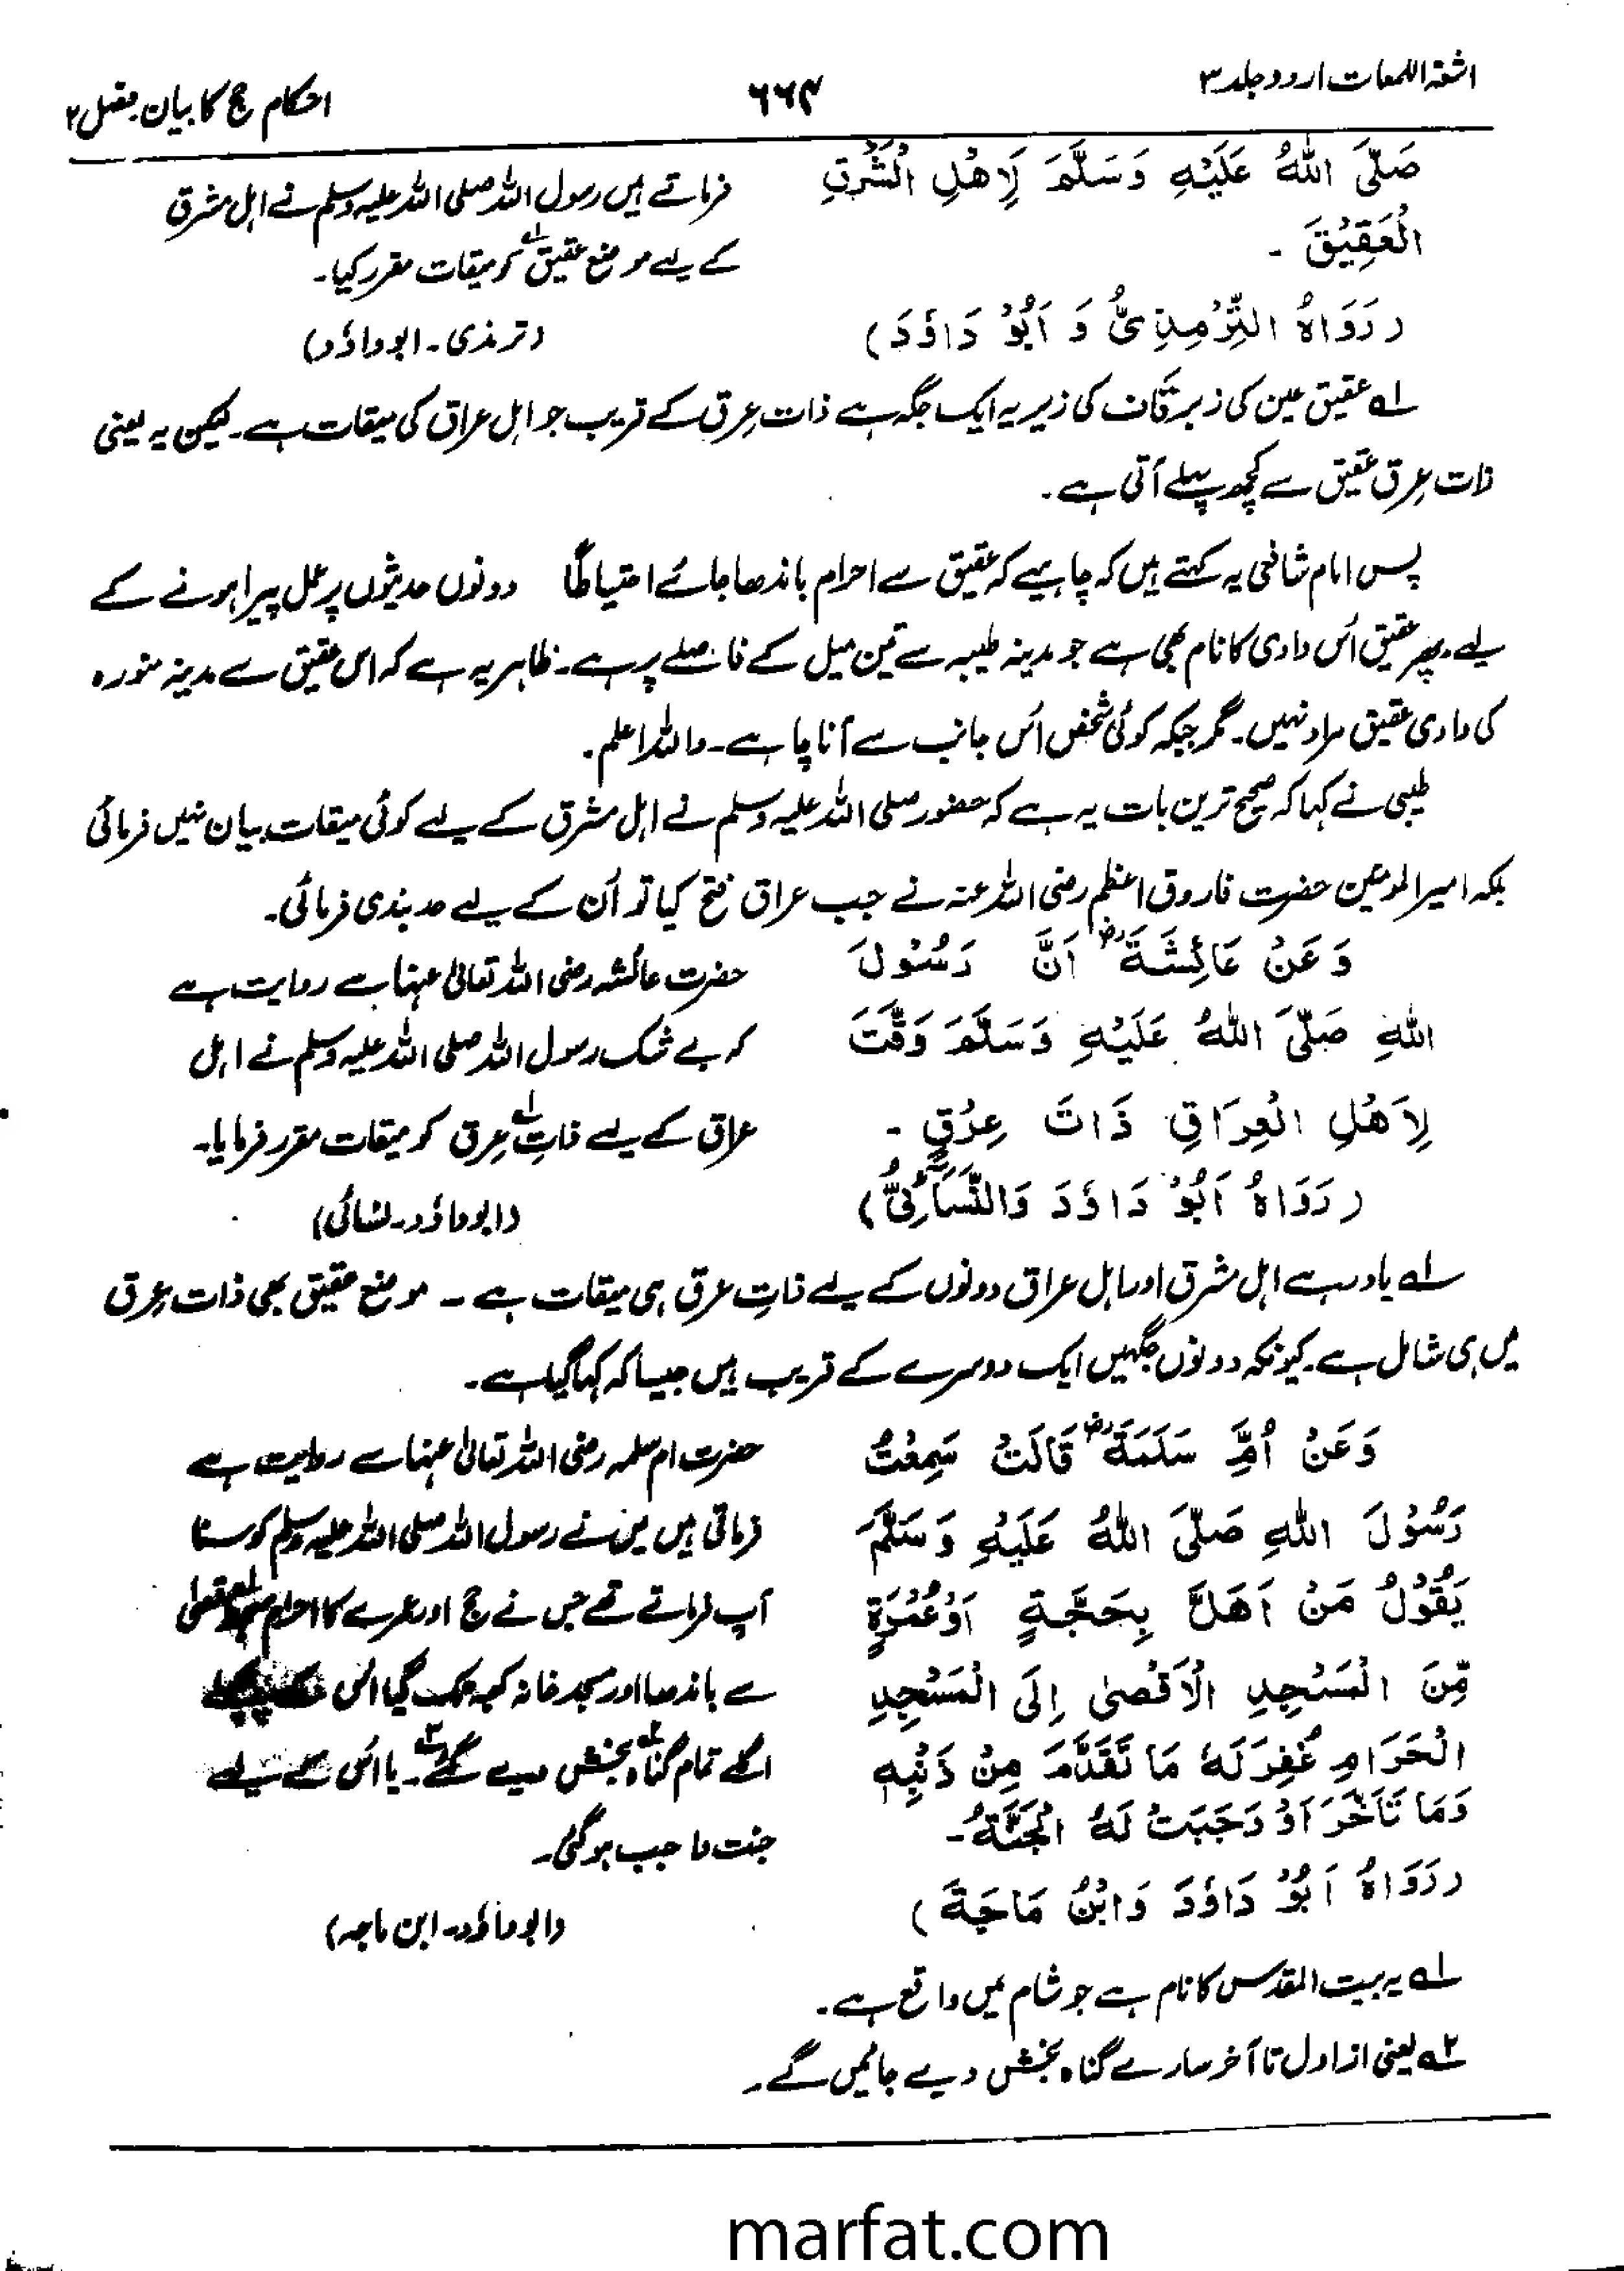 اشعۃ اللمعات اردو جلد ۳
۶۶۴
احکام حج کا بیان . فصل ۲
صَلَّی اللّٰهُ عَلَیْهِ وَسَلَّمَ لِاَهْلِ الْمَشْرِقِ
الْعَقِیْقَ ۔
(رَوَاهُ التِّرْمِذِیُّ وَ اَبُوْ دَاوٗدَ)
فرماتے ہیں رسول اللہ صلی اللہ علیہ وسلم نے اہل مشرق
کے لیے موضع عقیق ۱؎ کو میقات مقرر کیا۔
(ترمذی۔ ابوداؤد)
۱؎ عقیق عین کی زبر قاف کی زیر یہ ایک جگہ ہے ذات عِرق کے قریب جو اہل عراق کی میقات ہے۔ لیکن یہ یعنی
ذات عِرق عقیق سے کچھ پہلے آتی ہے۔
پس امام شافعی یہ کہتے ہیں کہ چاہیے کہ عقیق سے احرام باندھا جائے احتیاطًا دونوں حدیثوں پر عمل پیرا ہونے کے
لیے۔ پھر عقیق اُس وادی کا نام بھی ہے جو مدینہ طیبہ سے تین میل کے فاصلے پر ہے۔ ظاہر یہ ہے کہ اس عقیق سے مدینہ منورہ
کی وادی عقیق مراد نہیں۔ مگر جبکہ کوئی شخص اُس جانب سے آنا چاہے۔ واللہ اعلم۔
طیبی نے کہا کہ صحیح ترین بات یہ ہے کہ حضور صلی اللہ علیہ وسلم نے اہل مشرق کے لیے کوئی میقات بیان نہیں فرمائی
بلکہ امیر المومنین حضرت فاروق اعظم رضی اللہ عنہ نے جب عراق فتح کیا تو اُن کے لیے حد بندی فرمائی۔
وَعَنْ عَائِشَةَ رض اَنَّ رَسُوْلَ
اللّٰهِ صَلَّی اللّٰهُ عَلَیْهِ وَسَلَّمَ وَقَّتَ
لِاَهْلِ الْعِرَاقِ ذَاتَ عِرْقٍ ۔
(رَوَاهُ اَبُوْ دَاوٗدَ وَالنَّسَائِیُّ)
حضرت عائشہ رضی اللہ تعالیٰ عنہا سے روایت ہے
کہ بے شک رسول اللہ صلی اللہ علیہ وسلم نے اہل
عراق کے لیے ذاتِ ۱؎ عِرق کو میقات مقرر فرمایا۔
(ابوداؤد۔ نسائی)
۱؎ یاد رہے اہل مشرق اور اہل عراق دونوں کے لیے ذاتِ عرق ہی میقات ہے ۔ موضع عقیق بھی ذات عِرق
میں ہی شامل ہے۔ کیونکہ دونوں جگہیں ایک دوسرے کے قریب ہیں جیسا کہ کہا گیا ہے۔
وَعَنْ اُمِّ سَلَمَةَ رض قَالَتْ سَمِعْتُ
رَسُوْلَ اللّٰهِ صَلَّی اللّٰهُ عَلَیْهِ وَسَلَّمَ
یَقُوْلُ مَنْ اَهَلَّ بِحَجَّةٍ اَوْعُمْرَةٍ
مِّنَ الْمَسْجِدِ الْاَقْصٰی اِلَی الْمَسْجِدِ
الْحَرَامِ غُفِرَلَهٗ مَا تَقَدَّمَ مِنْ ذَنْبِهٖ
وَمَا تَاَخَّرَ اَوْ وَجَبَتْ لَهُ الْجَنَّةُ۔
(رَوَاهُ اَبُوْ دَاوٗدَ وَابْنُ مَاجَةَ)
حضرت ام سلمہ رضی اللہ تعالیٰ عنہا سے روایت ہے
فرماتی ہیں میں نے رسول اللہ صلی اللہ علیہ وسلم کو سنا
آپ فرماتے تھے جس نے حج اور عمرے کا احرام مسجد ۱؎ اقصٰی
سے باندھا اور مسجد خانہ کعبہ تک گیا اُس کے پچھلے
اگلے تمام گناہ ۲؎ بخش دیے گئے۔ ۳؎ یا اُس کے لیے
جنت واجب ہو گئی۔
(ابوداؤد۔ ابن ماجہ)
۱؎ یہ بیت المقدس کا نام ہے جو شام میں واقع ہے۔
۲؎ یعنی از اول تا آخر سارے گناہ بخش دیے جائیں گے۔
marfat.com